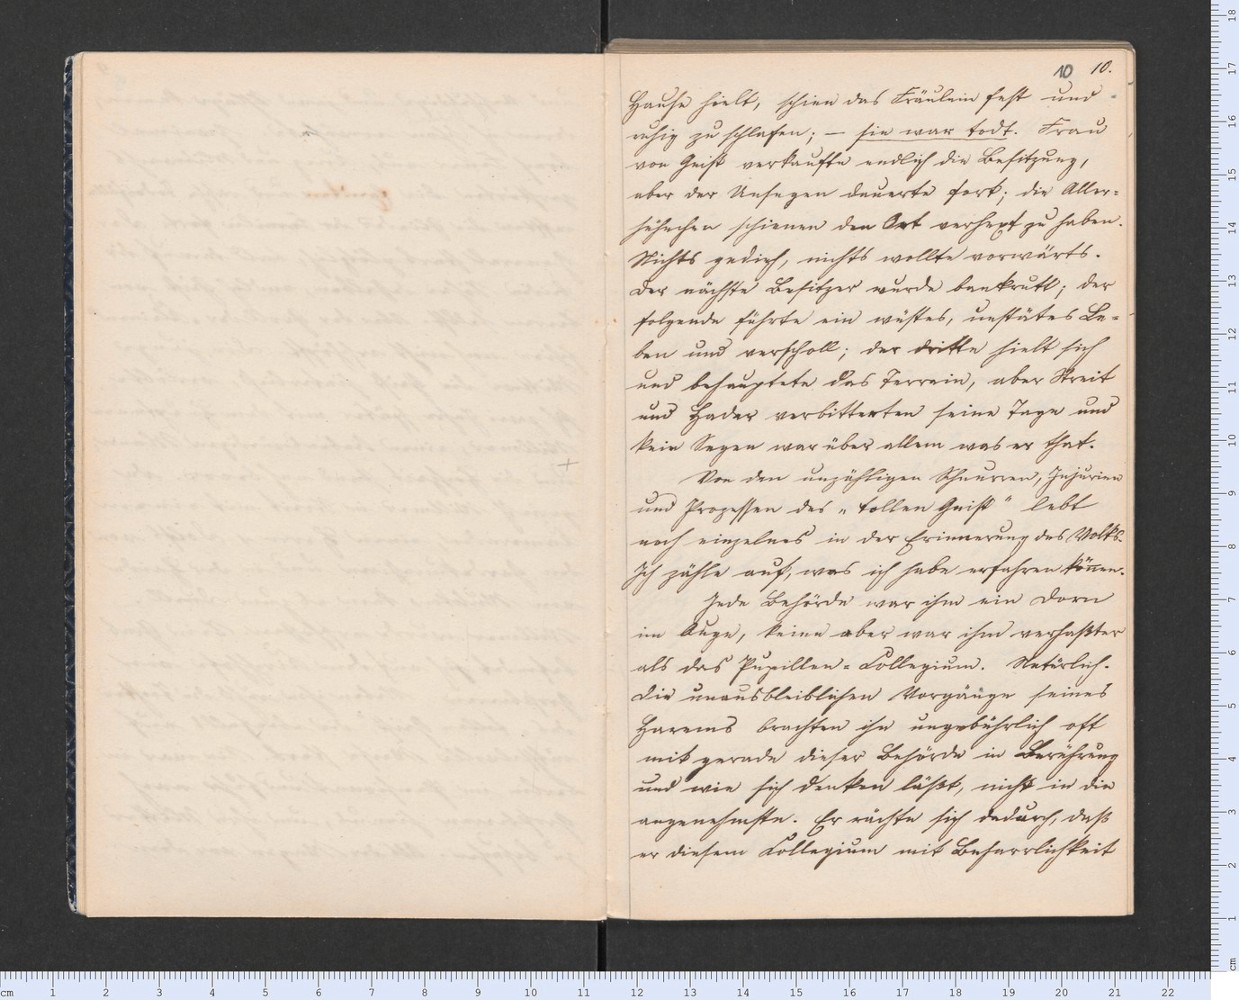 10 10.
Hause hielt, schien das Fräulein fest und
ruhig zu schlafen; — sie war todt. Frau
von Geist verkaufte endlich die Besitzung,
aber der Unsegen dauerte fort; die Aller-
hühnchen schienen den Ort verhext zu haben.
Nichts gedieh, nichts wollte vorwärts.
Der nächste Besitzer wurde bankrutt; der
folgende führte ein wüstes, unstätes Le-
ben und verscholl; der dritte hielt sich
und behauptete das Terrain, aber Streit
und Hader verbitterten seine Tage und
kein Segen war über allem was er that.
Von den unzähligen Schnurren, Injurien
und Prozessen des „tollen Geist" lebt
noch einzelnes in der Erinnerung des Volks.
Ich zähle auf, was ich habe erfahren können.
Jede Behörde war ihm ein Dorn
im Auge, keine aber war ihm verhaßter
als das Pupillen-Collegium. Natürlich.
Die unausbleiblichen Vorgänge seines
Harems brachten ihn ungebührlich oft
mit gerade dieser Behörde in Berührung
und wie sich denken läßt, nicht in die
angenehmste. Er rächte sich dadurch, daß
er diesem Collegium mit Beharrlichkeit